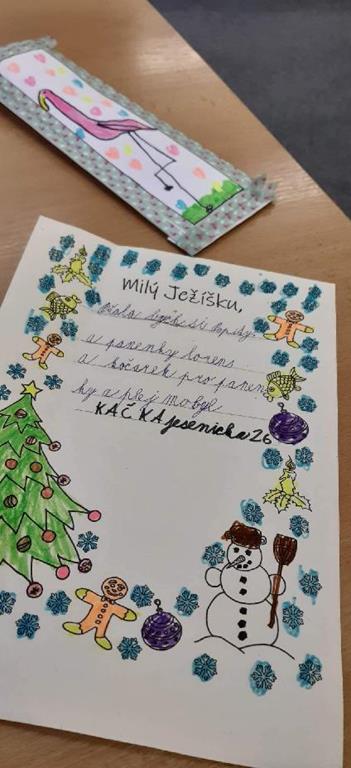 Milý Ježíšku,
přála bych si
a panenky lorens
a kočárek pro panen
ky a plej mobyl
KAČKA jesenická 26